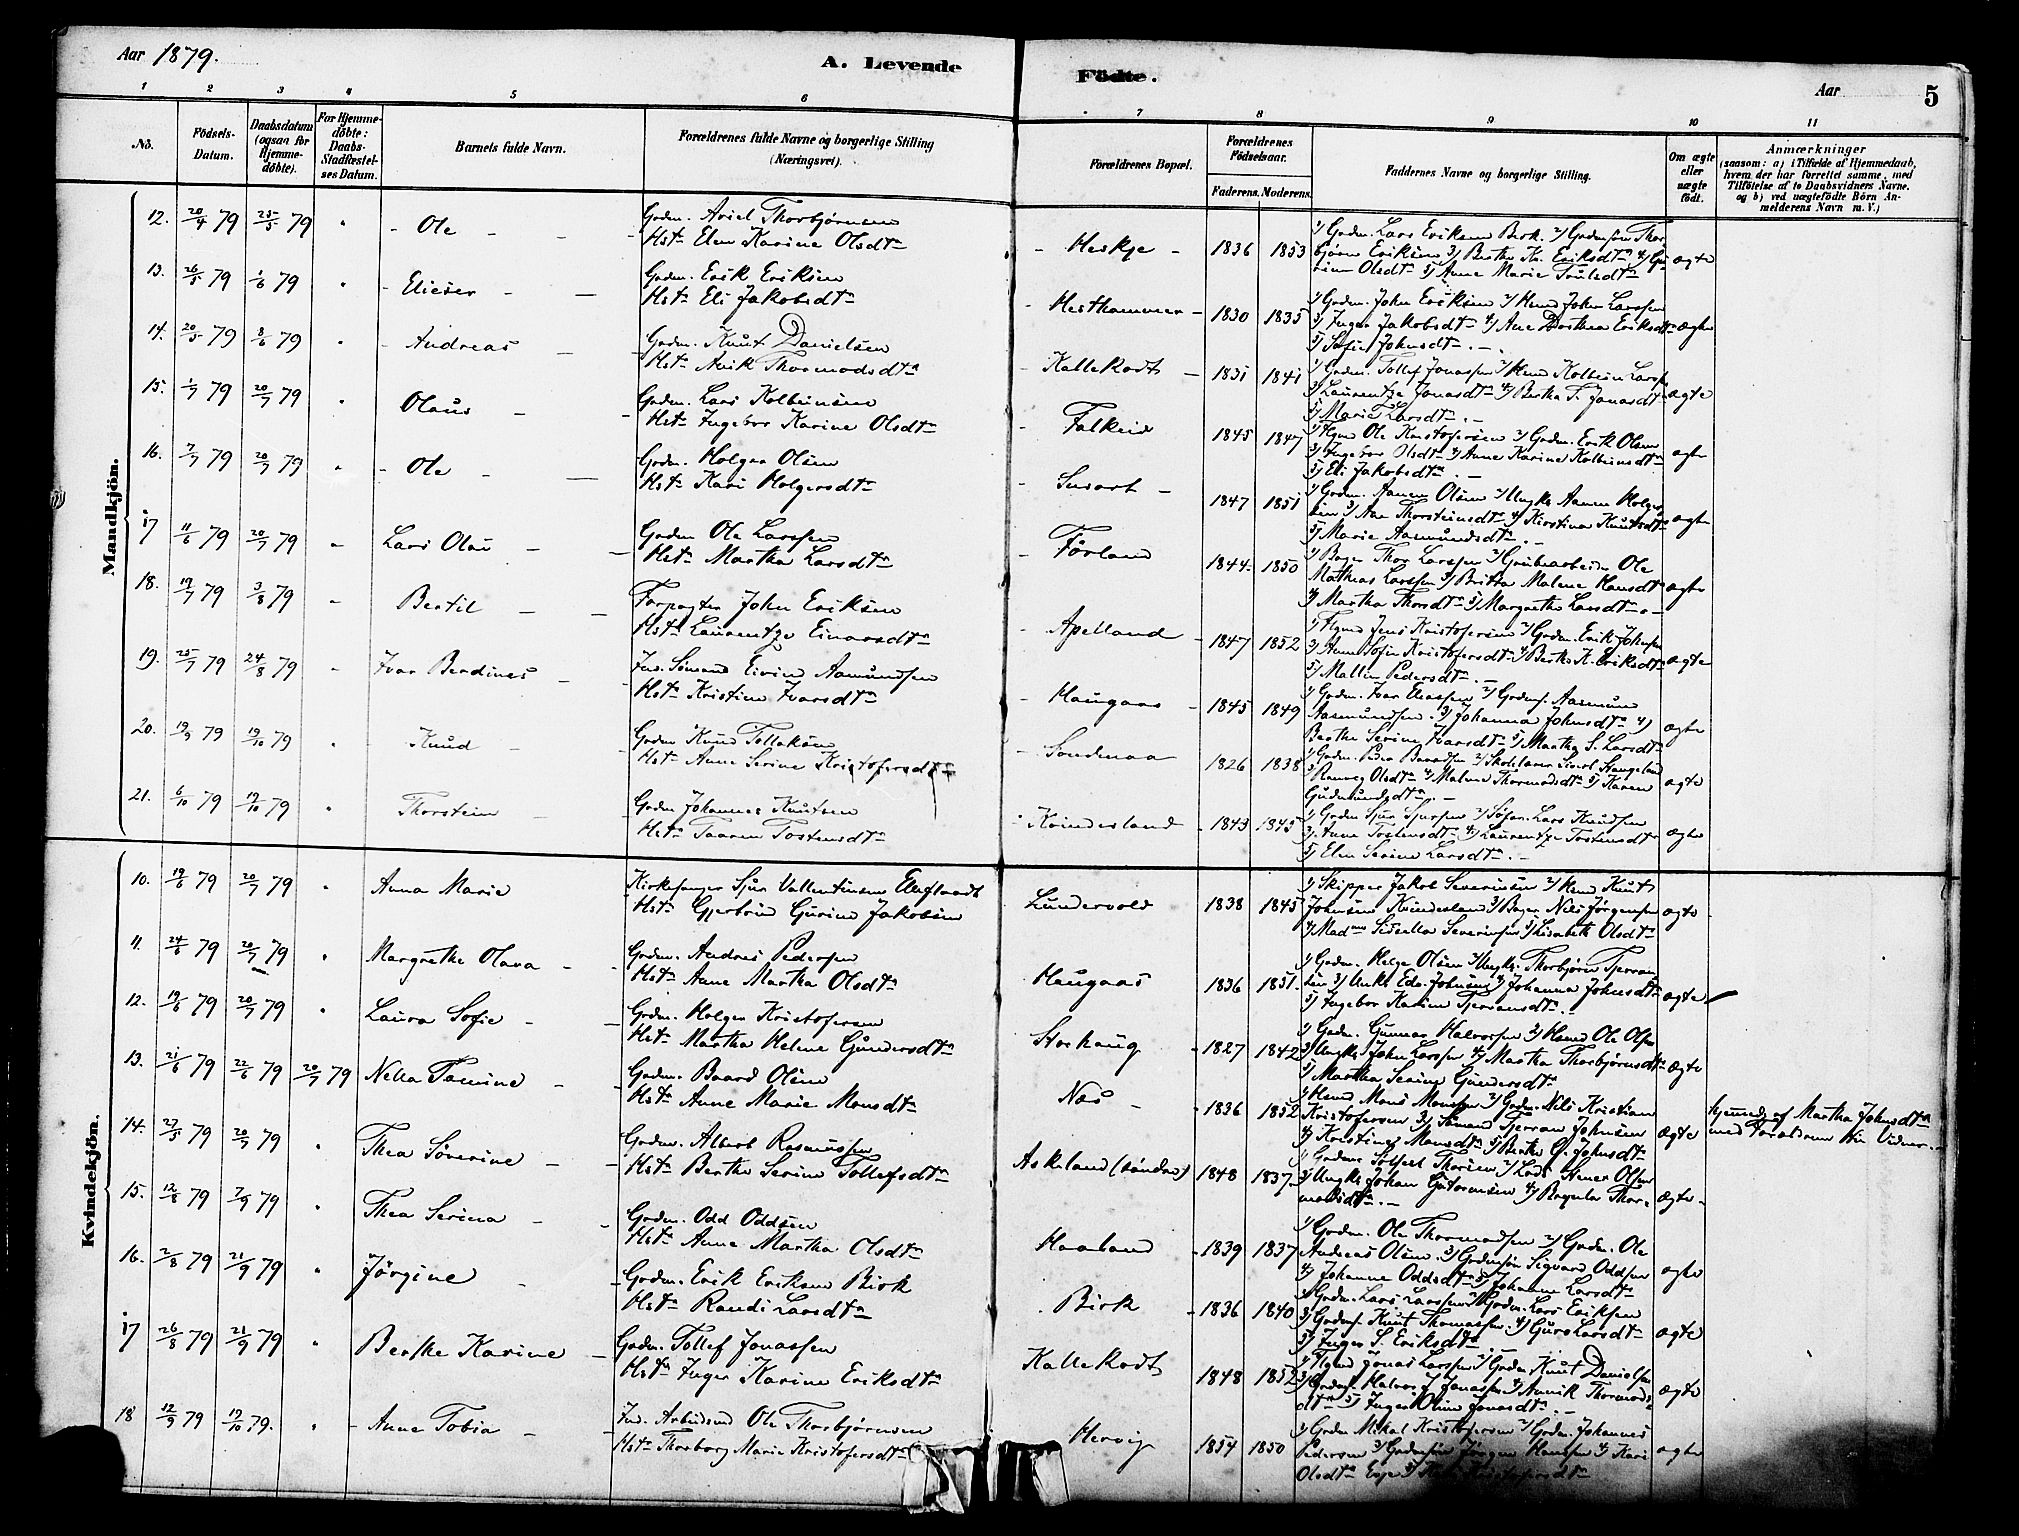 Aar 1879.
A. Levende
Födte.
Aar
5
1 2 3 4 5 6 7 8 9 10 11
No.
Födsels-
Datum.
Daabsdatum
(ogsaa for
Hjemme-
döbte).
For Hjemme-
döbte:
Daabs-
Stadfæstel-
ses Datum.
Barnets fulde Navn.
Forældrenes fulde Navne og borgerlige Stilling
(Næringsvei).
Forældrenes Bopæl.
Forældrenes
Födselsaar.
Faderens. Moderens.
Faddernes Navne og borgerlige Stilling.
Om ægte
eller
uægte
födt.
Anmærkninger
(saasom: a) i Tilfælde af Hjemmedaab,
hvem der har forrettet samme, med
Tilföielse af to Daabsvidners Navne.
og b) ved uægtefödte Börn An-
melderens Navn m. V.)
Mandkjön.
12. 20/4 79 25/5 79 " Ole
Grdm. Aviel Thorbjørnsen
Hst. Elen Karine Olsdtr
Heskje 1836 1853
1/ Grdm. Lars Eriksen Birk. 2/ Grdmsøn Thor
bjørn Eriksen 3/ Berthe Kr. Eriksdtr 4/ Gu
rine Olsdtr 5/ Anne Marie Trulsdtr
ægte
13. 26/5 79 1/6 79 " Elieser
Grdm. Erik Eriksen
Hst. Eli Jakobsdtr
Hesthammer 1830 1835
1/ Grdm. John Eriksen 2/ Hmd John Larssen
3/ Inger Jakobsdtr 4/ Ane Dorthea Eriksdtr
5/ Sofie Johnsdtr
ægte
14. 20/5 79 8/6 79 " Andreas
Grdm. Knut Danielsen
Hst. Anik Thormodsdtr
Kallekodt 1831 1841
1/ Grdm. Tollef Jonassen 2/ Hmd Kolbein Larssen
3/ Laurentze Jonasdtr 4/ Bertha T. Jonasdtr
5/ Marie Larsdtr
ægte
15. 1/7 79 20/7 79 " Olaus
Grdm. Lars Kolbeinsen
Hst. Ingebor Karine Olsdtr
Falkeid 1845 1847
1/ Hmd Ole Kristofersen 2/ Grdm. Erik Olsen
3/ Ingebor Olsdtr 4/ Anne Karine Kolbeinsdtr
5/ Eli Jakobsdtr
ægte
16. 7/7 79 20/7 79 " Ole
Grdm. Holger Olsen
Hst. Kari Holgersdtr
Susort 1847 1851
1/ Grdm. Aamen Olsen 2/ Ungk. Aanen Holger
sen 3/ Ane Thorsteinsdtr 4/ Kirstina Knutsdtr
5/ Marie Aasmundsdtr
ægte
17 11/6 79 20/7 79 " Lars Olai
Grdm Ole Larssen
Hst. Martha Larsdtr
Førland 1844 1850
1/ Bager Thor Larssen 2/ Grubearbeider Ole
Mathias Larssen 3/ Britta Malene Hansdtr
4/ Martha Thorsdtr 5/ Margrethe Larsdtr
ægte
18. 19/7 79 3/8 79 " Bertil
Forpagter John Eriksen
Hst. Laurentze Einarsdtr
Apelland 1847 1852
1/ Hmd Jens Kristofersen 2/ Grdm. Erik Johnsen
3/ Anne Sofie Kristofersdtr 4/ Berthe K. Eriksdtr
5/ Mallin Pedersdtr
ægte
19. 25/7 79 24/8 79 " Ivar Berdines
Ind. Sømand Eivind Aamundsen
Hst. Kristine Ivarsdtr
Haugaas 1845 1849
1/ Grdm. Ivar Eliassen 2/ Grdmf. Aasmund
Aasmundsen 3/ Johanna Johnsdtr 4/
Berthe Serine Ivarsdtr 5/ Martha S. Larsdtr
ægte
20. 19/9 79 19/10 79 " Knud
Grdm Knud Tollaksen
Hst. Anne Serine Kristofersdtr
Søndenaa 1826 1838
1/ Grdm. Peder Baardsen 2/ Skolelærer Sivert Stangeland
3/ Ranveg Olsdtr 4/ Malene Thormodsdtr 5/ Karen
Gudmundsdtr
ægte
21. 6/10 79 19/10 79 " Thorstein
Grdm Johannes Knutsen
Hst. Taaren Tostensdtr
Kvindesland 1843 1845
1/ Grdm Sjur Sjursen 2/ Lars Knudsen
3/ Anne Tostensdtr 4/ Laurentze Tostensdtr
5/ Elen Serine Larsdtr
ægte
Kvindekjön.
10. 19/6 79 20/7 79 " Anna Marie
Kirkesanger Sjur Vallentinsen
Hst. Gjertrud Gurine Jakobsen
Lundervold 1838 1845
1/ Skipper Jakob Severinsen 2/ Hmd Knut
Johnsen Kvindesland 3/ Bager Nils Jørgensen
4/ Mad. Severinsen 5/ Lisabeth Olsdtr
ægte
11. 24/6 79 20/7 79 " Margrethe Olava
Grdm. Andres Pedersen
Hst. Anne Martha Olsdtr
Haugaas 1836 1851
1/ Grdm. Helge Olsen 2/ Ungk. Thorbjørn Tjerran
sen 3/ Johnsen 4/ Johanna Johnsdtr
5/ Ingebor Karine Tjerransdtr
ægte
12. 19/6 79 20/7 79 " Laura Sofie
Grdm. Holger Kristofersen
Hst. Martha Helene Gundersdtr
Storhaug 1827 1842
1/ Grdm. Gunnar Halvorsen 2/ Hmd Ole Olsen
3/ Ungk. John Larssen 4/ Martha Thorbjørnsdtr
5/ Martha Serine Gundersdtr
ægte
13. 21/6 79 22/6 79 20/7 79 Nella Tomine
Grdm. Baard Olsen
Hst. Anne Marie Monsdtr
Næs 1836 1852
1/ Hmd Mons Monsen 2/ Grdm. Nils Kristian
Kristofersen 3/ Sømand Tjerran Johnsen
4/ Kristine Monsdtr 5/ Berthe G. Johnsdtr
ægte
hjemdbt af Martha Johnsdtr
med Forældrene til Vidner.
14. 27/5 79 20/7 79 " Thea Severine
Grdm. Albert Rasmussen
Hst. Berthe Serine Tollefsdtr
Askeland (søndre) 1848 1837
1/ Grdm. Thorsen 2/ Lods Stener Olsen
3/ Ungk. Johan Gutormsen 4/ Thor-
modsdtr
ægte
15. 12/8 79 7/9 79 " Thea Serina
Grdm. Odd Oddsen
Hst. Anne Martha Olsdtr
Haaland 1839 1837
1/ Grdm. Ole Thormodsen 2/ Grdm. Ole
Andreas Olsen 3/ Grdmsøn Sigvard Oddsen
4/ Johanne Oddsdtr 5/ Johanne Larsdtr
ægte
16. 2/8 79 21/9 79 " Jørgine
Grdm. Erik Eriksen Birk
Hst. Randi Larsdtr
Birk 1836 1840
1/ Grdm. Lars Larssen 2/ Grdm. Lars Eriksen
3/ Grdmf. Knut Thomassen 4/ Guro Larsdtr
5/ Inger S. Eriksdtr
ægte
17 26/8 79 21/9 79 " Berthe Karine
Grdm. Tollef Jonassen
Hst. Inger Karine Eriksdtr
Kallekodt 1848 1852
1/ Hmd Jonas Larssen 2/ Grdm Knut Danielsen
3/ Grdmf. Halvor J. Jonassen 4/ Annik Thormods-
dtr 5/ Inger Oline Jonasdtr
ægte
18 12/9 79 19/10 79. " Anne Tobia
Ind. Arbeidsmd Ole Thorbjørnsen
Hst. Thorborg Marie Kristofersdtr
Hervig 1854 1850
1/ Grdm Mikal Kristofersen 2/ Grdm. Johannes
Pedersen 3/ Grdmsøn Jørgen Hansen 4/ Kari
Olsdtr 5/ Kristofersdtr
ægte